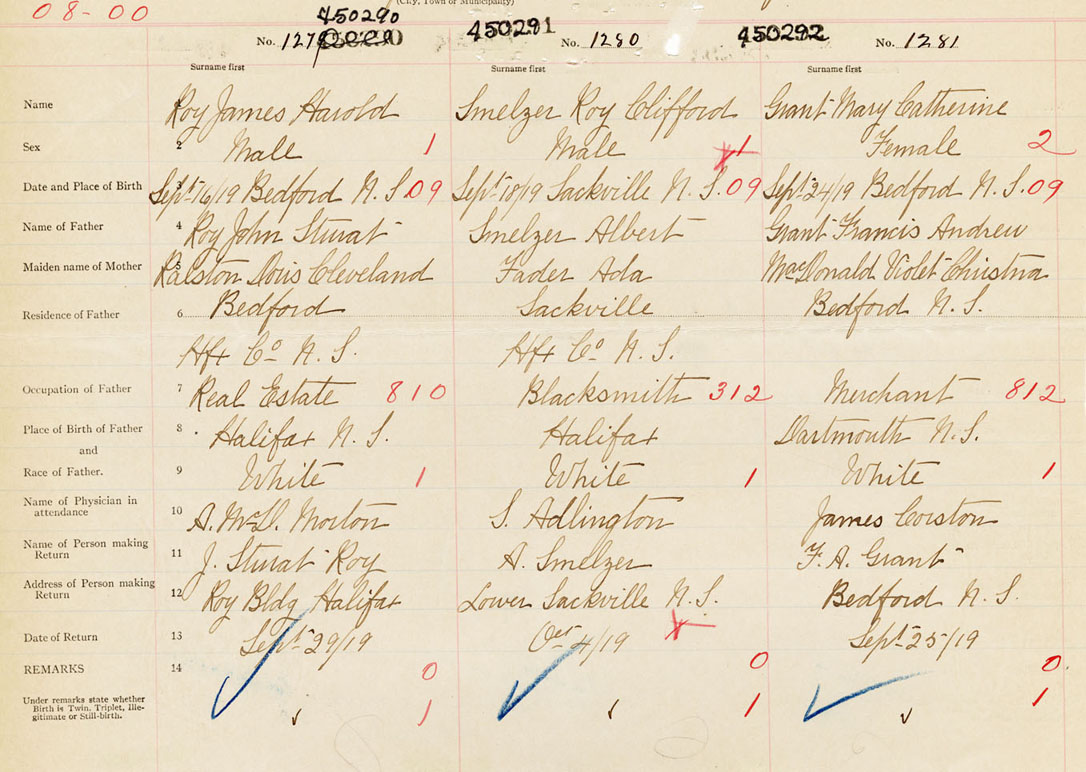 08-00
(City, Town or Municipality)
450290 450291 450292
No. 127 No. 1280 No. 1281
Surname first Surname first Surname first
Name 1 Roy James Harold Smelzer Roy Clifford Grant Mary Catherine
Sex 2 Male 1 Male 1 Female 2
Date and Place of Birth 3 Sept 16/19 Bedford N.S. 09 Sept 18/19 Sackville N.S. 09 Sept 24/19 Bedford N.S. 09
Name of Father 4 Roy John Sturat Smelzer Albert Grant Francis Andrew
Maiden name of Mother 5 Ralston Doris Cleveland Fader Ada McDonald Violet Christna
Residence of Father 6 Bedford Sackville Bedford N.S.
Hfx Co N.S. Hfx Co N.S.
Occupation of Father 7 Real Estate 810 Blacksmith 312 Merchant 812
Place of Birth of Father 8 Halifax N.S. Halifax Dartmouth N.S.
and
Race of Father. 9 White 1 White 1 White 1
Name of Physician in
attendance 10 A. McD. Morton S. Adlington James Corston
Name of Person making
Return 11 J. Sturat Roy A. Smelzer F. A. Grant
Address of Person making
Return 12 Roy Bldg Halifax Lower Sackville N.S. Bedford N.S.
Date of Return 13 Sept 29/19 Oct 4/19 Sept 25/19
REMARKS 14 0 0 0
Under remarks state whether
Birth is Twin, Triplet, Ille-
gitimate or Still-birth. 1 1 1